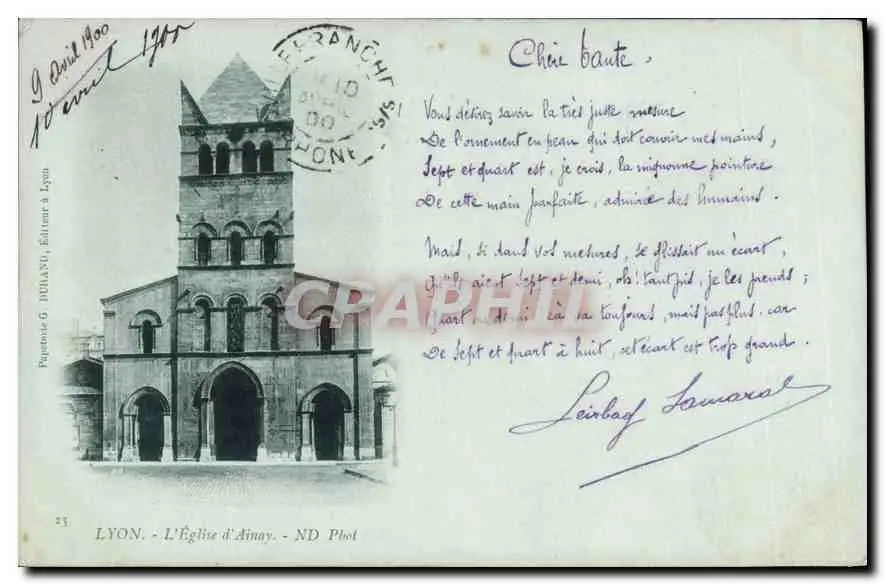 9 avril 1900
10 avril 1900
Chère tante,
Vous désirez savoir la très juste mesure
De l'ornement en peau qui doit couvrir mes mains,
Sept et quart est, je crois, la mignonne pointure
De cette main parfaite, admirée des humains.
Mais, si dans vos mesures, se glissait un écart,
Qu'ils aient sept et demi, oh! tant pis, je les prends;
Quart ça va toujours, mais pas plus, car
De sept et quart à huit, cet écart est trop grand.
Papeterie G. DURAND, Éditeur à Lyon
EFRANCHE S/S.
10
00
RHONE
CPARHII
25
LYON. - L'Église d'Ainay. - ND Phot